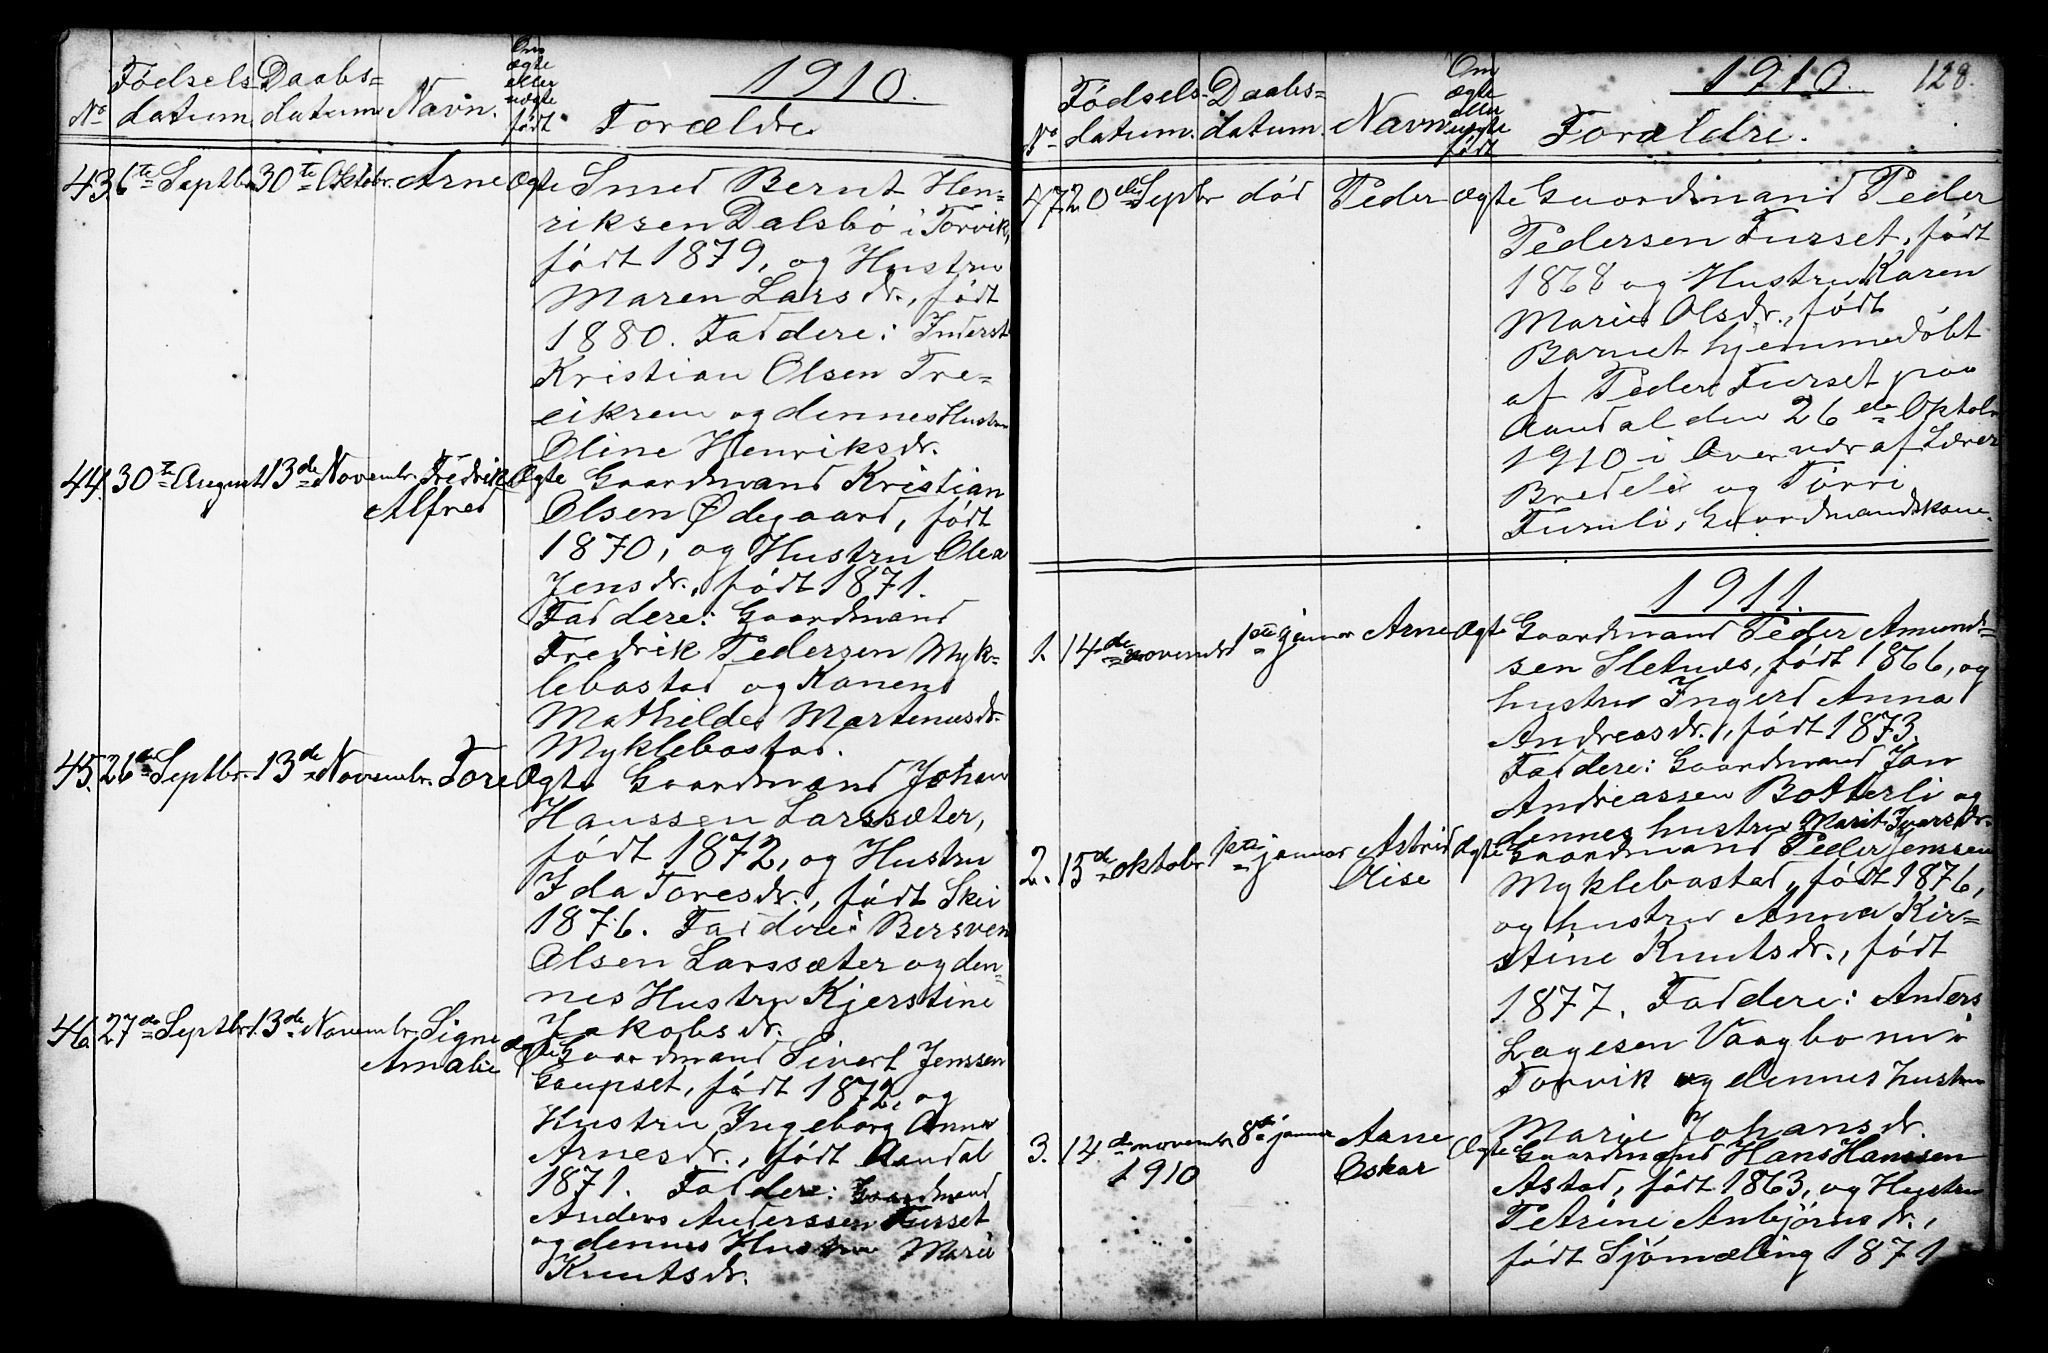 1910.
No Fødsels datum. Daabs= datum. Navn. Om ægte eller uægte født. Forældre.
43. 6te Septbr. 30te Oktobr. Arne Ægte Smed Bernt Hen=
riksen Dalsbø i Torvik,
født 1879, og Hustru
Maren Larsdr., født
1880. Faddere: Inderst
Kristian Olsen Tre=
eikrem og dennes Hustru
Oline Henriksdr.
44. 30te August 13de Novembr. Fredrik Ægte Gaardmand Kristian
Alfred Olsen Ødegaard, født
1870, og Hustru Olea
Jensdr., født 1871.
Faddere: Gaardmand
Fredrik Pedersen Myk=
lebostad og Konens
Mathilde Martenusdr.
Myklebostad.
45. 26de Septbr. 13de Novembr. Tore Ægte Gaardmand Johan
Hanssen Larssæter,
født 1872, og Hustru
Ida Toresdr., født Skei
1876. Faddere: Bersven
Olsen Larssæter og den=
nes Hustru Kjerstine
Jakobsdr.
46. 27de Septbr. 13de Novembr. Signe Ægte Gaardmand Sivert Jenssen
Amalie Gaupset, født 1872, og
Hustru Ingeborg Anna
Arnesdr., født Aandal
1871. Faddere: Gaardmand
Anders Anderssen Furset
og dennes Hustru Marie
Knutsdr.
1910. 128.
No Fødsels= datum. Daabs= datum. Navn Om ægte eller uægte født Forældre.
47. 20de Septbr død Peder Ægte Gaardmand Peder
Pedersen Furset, født
1868 og Hustru Karen
Marie Olsdr., født
Barnet hjemmedøbt
af Peder Furset paa
Aandal den 26de Oktobr
1910 i Overvær af Lærer
Bredeli og
Furuli, Gaardmandskone.
1911.
1. 14de novembr 1ste januar Arne Ægte Gaardmand Peder Amund=
sen Sletnes, født 1866, og
hustru Ingerd Anna
Andreasdr., født 1873.
Faddere: Gaardmand Jon
Andreassen Botterli og
dennes hustru Marit Ivarsdr.
2. 15de oktobr 1ste januar Astrid Ægte Gaardmand Peder Jenssen
Olise Myklebostad, født 1876,
og hustru Anna Kir=
stine Knutsdr., født
1877. Faddere: Anders
Lagesen Vaagbo
Torvik og dennes hustru
Marie Johansdr.
3. 14de novembr 8de januar Arne Ægte Gaardmand Hans Hanssen
1910 Oskar Astad, født 1863, og Hustru
Petrine Anbjørnsdr.,
født Sjømæling 1871